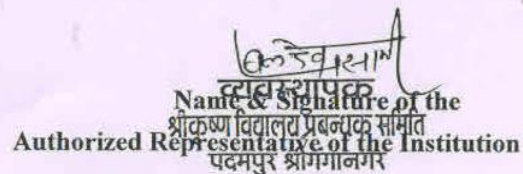 व्यवस्थापक
Name & Signature of the
श्रीकृष्ण विद्यालय प्रबन्धक समिति
Authorized Representative of the Institution
पदमपुर श्रीगंगानगर